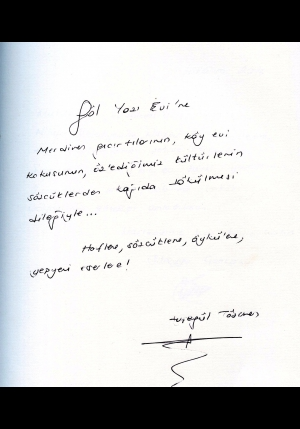 Göl Yazı Evi'ne
Merdiven gıcırtılarının, köy evi
kokusunun, özlediğimiz kültürlerin
sözcüklerden kağıda dökülmesi
dileğiyle...
Harflere, sözcüklere, öykülere,
yepyeni eserlere!